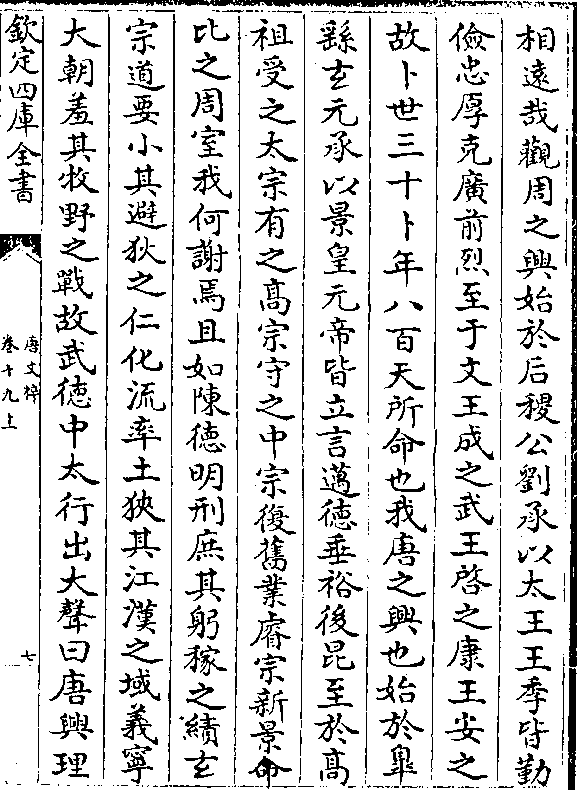 相逺哉觀周之興始於后稷公劉承以太王王季皆勤
儉忠厚克廣前烈至于文王成之武王啓之康王安之
故卜世三十卜年八百天所命也我唐之興也始於臯
繇𤣥元承以景皇元帝皆立言邁徳垂裕後昆至於髙
祖受之太宗有之髙宗守之中宗復舊業睿宗新景命
比之周室我何謝焉且如陳徳明刑庶其躬稼之績𤣥
宗道要小其避狄之仁化流率土狹其江漢之域義寧
大朝羞其牧野之戰故武徳中太行出大聲曰唐興理
欽定四庫全書
唐文粹
卷十九上
七